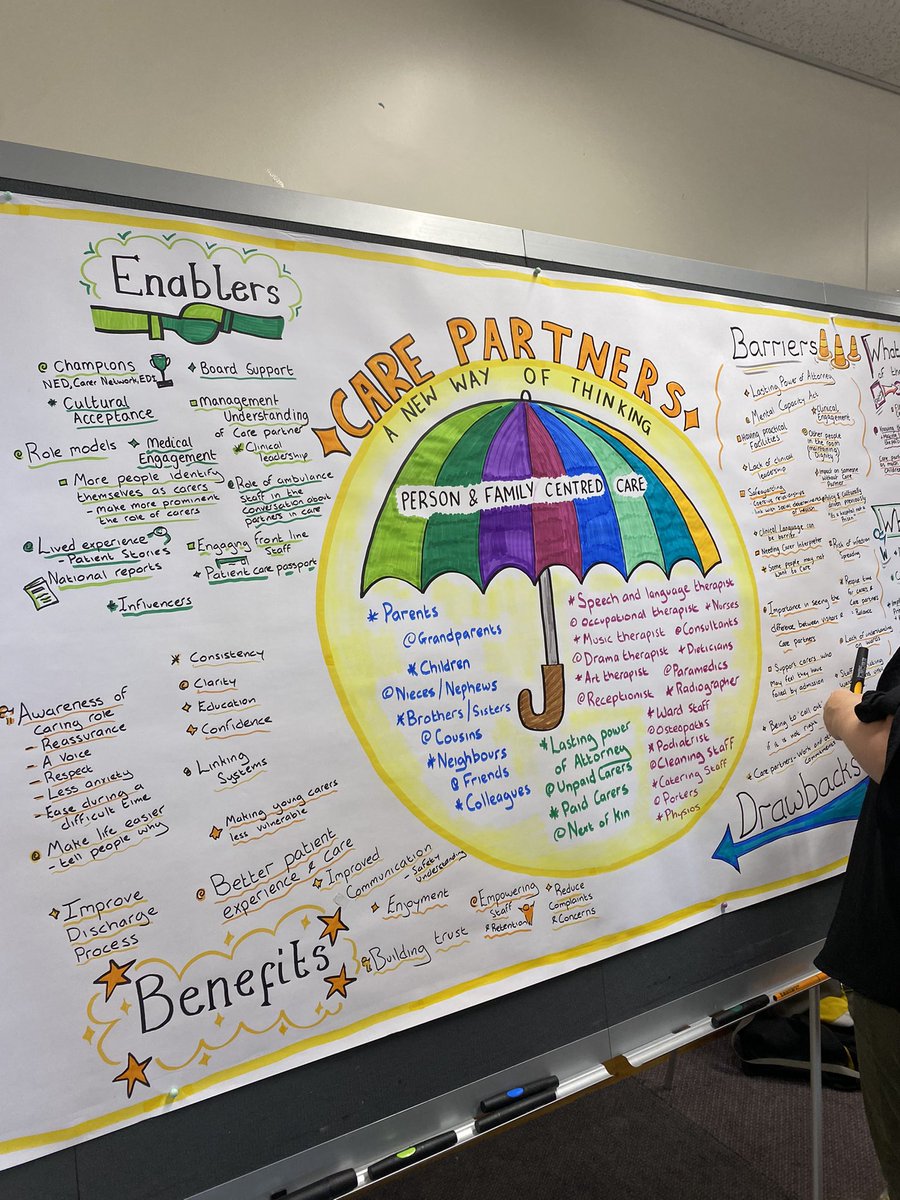 Enablers
Champions
NED, Carer Network, EDS
Cultural
Acceptance
Role models
Medical
Engagement
More people identify
themselves as carers
- make more prominent
the role of carers
Lived experience
- Patient Stories
National reports
Influencers
Board Support
Management
Understanding
of Care partner
Clinical
leadership
Role of ambulance
Staff in the
conversation about
partners in care
Engaging front line
Staff
Patient care passport
CARE PARTNERS
A NEW WAY OF THINKING
PERSON & FAMILY CENTRED CARE
Parents
Grandparents
Children
Nieces/Nephews
Brothers/Sisters
Cousins
Neighbours
& Friends
Colleagues
Lasting power
of Attorney
Unpaid Carers
Paid Carers
Next of kin
Speech and language therapist
Occupational therapist
Nurses
Music therapist
Consultants
Drama therapist
Dieticians
Art therapist
Paramedics
Receptionist
Radiographer
Ward Staff
Osteopaths
Podiatrist
Cleaning Staff
Catering Staff
Porters
Physios
Barriers
Lasting Power of Attorney
Mental Capacity Act
Clinical
Engagement
Having practical
Facilities
Other people
in the room
(maintaining)
Dignity?
Lack of clinical
leadership
Impact on someone
without Care
Partner
Safeguarding
Clinical Language can
be barrier
Needing Carer Interpreter
Risk of infection
Spreading
Some people may not
want to care
Importance in seeing the
difference between visitors &
Care partners
People time
for carers &
Care partners
- Balance
Lack of understanding
Support carers who
may feel they have
failed by admission
Being to 'call out'
if it is not right
Care partners - Work and
commitments
Drawbacks
Awareness of
caring role
- Reassurance
- A voice
- Respect
- Less anxiety
- Ease during a
difficult time
Make life easier
- tell people why
Consistency
Clarity
Education
Confidence
Linking
Systems
Making young carers
less vulnerable
Improve
Discharge
Process
Better patient
experience & care
Improved
Communication
- Safety
Understanding
Enjoyment
Empowering
Staff
& Retention
Reduce
Complaints
& Concerns
Building trust
Benefits